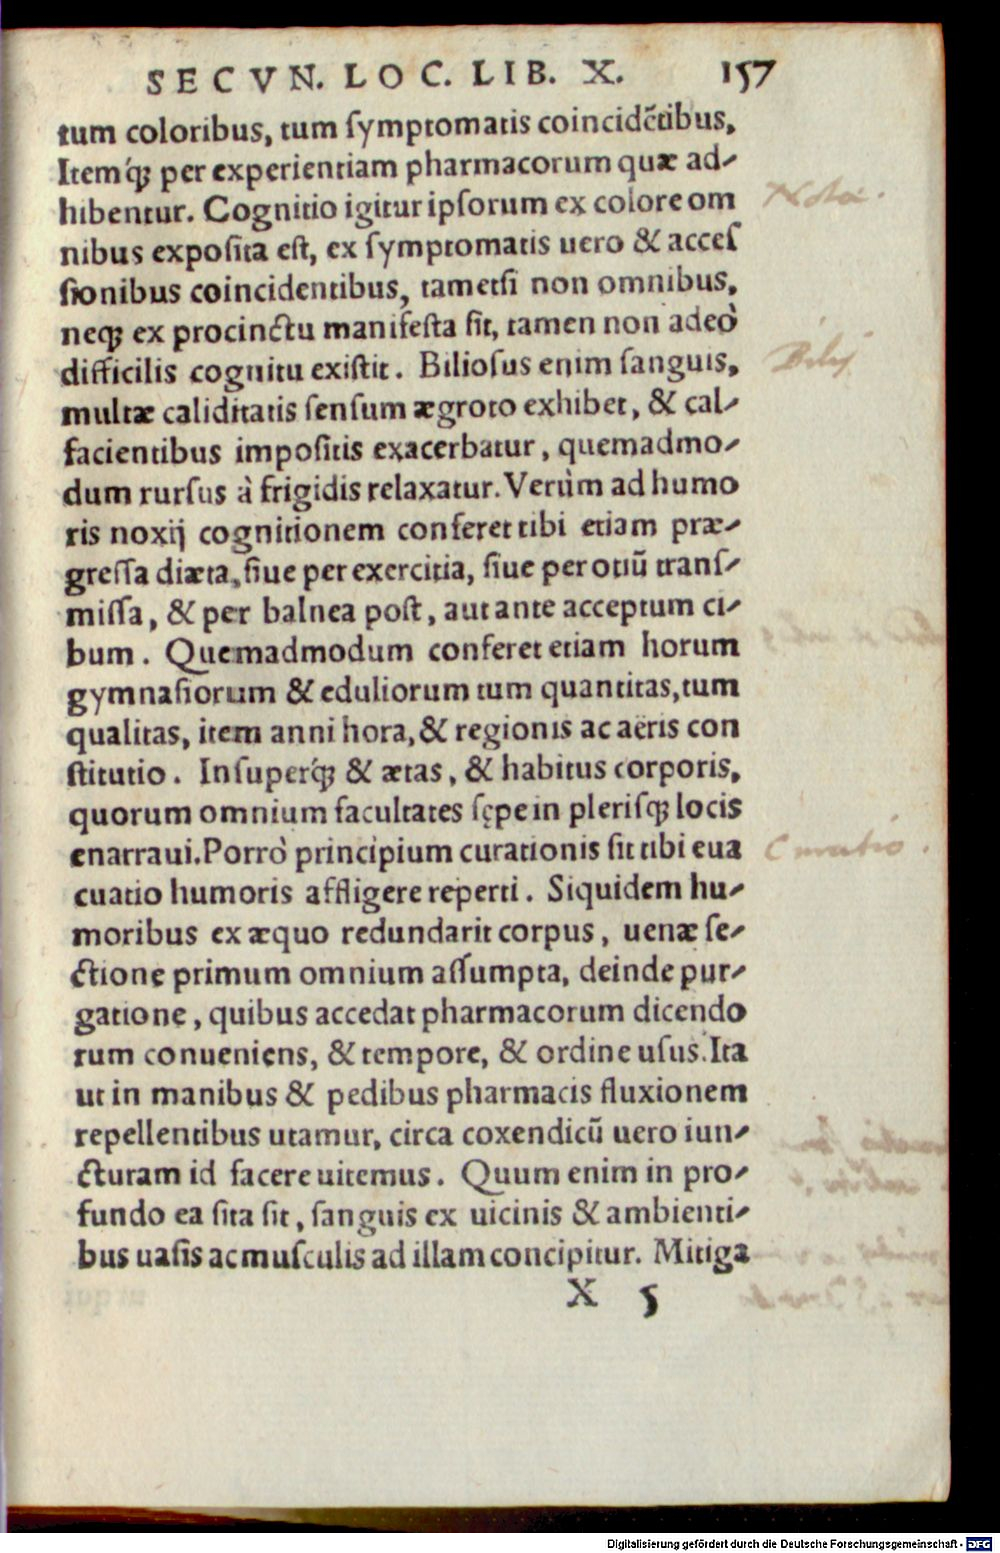 SECVN. LOC. LIB. X. 157
tum coloribus, tum ſymptomatis coincidẽtibus,
Itemq́ꝫ per experientiam pharmacorum quæ ad-
hibentur. Cognitio igitur ipſorum ex colore om
nibus expoſita eſt, ex ſymptomatis uero & acceſ
ſionibus coincidentibus, tametſi non omnibus,
neqꝫ ex procinctu manifeſta ſit, tamen non adeò
difficilis cognitu exiſtit. Bilioſus enim ſanguis,
multæ caliditatis ſenſum ægroto exhibet, & cal-
facientibus impoſitis exacerbatur, quemadmo-
dum rurſus à frigidis relaxatur. Verùm ad humo
ris noxij cognitionem conferet tibi etiam præ-
greſſa diæta, ſiue per exercitia, ſiue per otiũ tranſ-
miſſa, & per balnea poſt, aut ante acceptum ci-
bum. Quemadmodum conferet etiam horum
gymnaſiorum & eduliorum tum quantitas, tum
qualitas, item anni hora, & regionis ac aëris con
ſtitutio. Inſuperq́ꝫ & ætas, & habitus corporis,
quorum omnium facultates ſępe in pleriſqꝫ locis
enarraui. Porrò principium curationis ſit tibi eua
cuatio humoris affligere reperti. Siquidem hu-
moribus ex æquo redundarit corpus, uenæ ſe-
ctione primum omnium aſſumpta, deinde pur-
gatione, quibus accedat pharmacorum dicendo
rum conueniens, & tempore, & ordine uſus. Ita
ut in manibus & pedibus pharmacis fluxionem
repellentibus utamur, circa coxendicũ uero iun-
cturam id facere uitemus. Quum enim in pro-
fundo ea ſita ſit, ſanguis ex uicinis & ambienti-
bus uaſis ac muſculis ad illam concipitur. Mitiga
X 5
Nota.
Curatio.
Digitalisierung gefördert durch die Deutsche Forschungsgemeinschaft - DFG